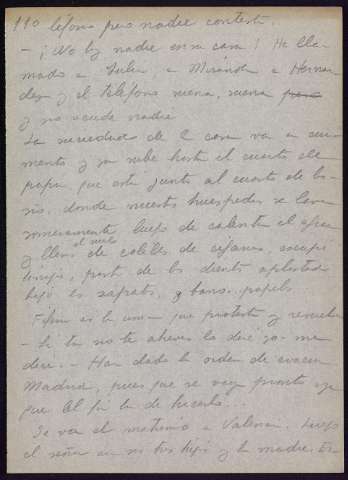 110 léfono pero nadie contesta.
- ¡No hay nadie en su casa! He lla-
mado a Julia, a Miranda, a Hernan-
dez y el teléfono suena, suena
y no acude nadie.
La suciedad de la casa va en au-
mento y ya sube hasta el cuarto de
papá que está junto al cuarto de ba-
ño, donde nuestros huéspedes se lavan
someramente luego de calentar el agua
y llenar el suelo de colillas de cigarros,
pasta de los dientes aplastada
bajo los zapatos, y barro, papeles
es la única que protesta y
- Si tu no te atreves lo diré yo - me
dice. - Han dado la orden de evacuar
Madrid, pues que se vayan pronto ya
que al fin han de hacerlo...
Se va el matrimonio a Valencia. Luego
el señor con sus tres hijos y la madre. En-